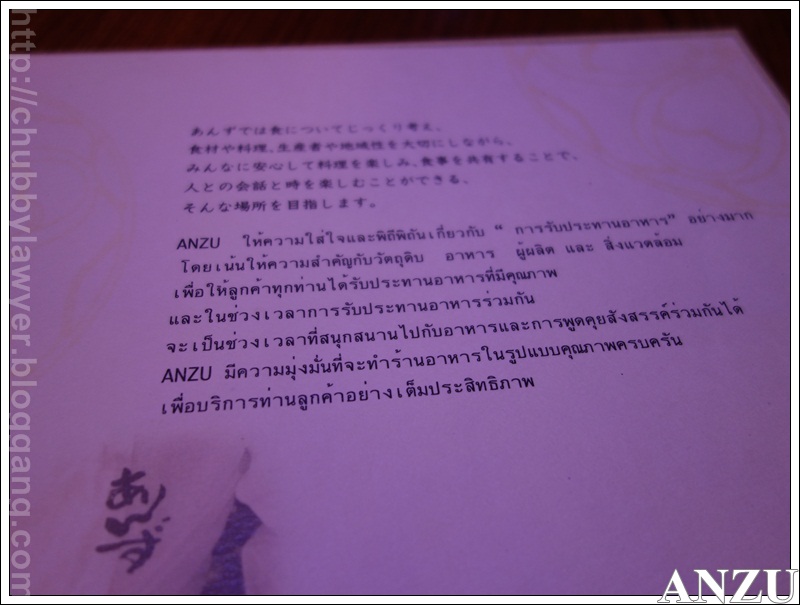 http://chubbylawyer.bloggang.com
あんずでは食についてじっくり考え、
食材や料理、生産者や地域性を大切にしながら、
みんなに安心して料理を楽しみ、食事を共有することで、
人との会話と時を楽しむことができる、
そんな場所を目指します。
ANZU ให้ความใส่ใจและพิถีพิถันเกี่ยวกับ “ การรับประทานอาหาร” อย่างมาก
โดยเน้นให้ความสำคัญกับวัตถุดิบ อาหาร ผู้ผลิต และ สิ่งแวดล้อม
เพื่อให้ลูกค้าทุกท่านได้รับประทานอาหารที่มีคุณภาพ
และในช่วงเวลาการรับประทานอาหารร่วมกัน
จะเป็นช่วงเวลาที่สนุกสนานไปกับอาหารและการพูดคุยสังสรรค์ร่วมกันได้
ANZU มีความมุ่งมั่นที่จะทำร้านอาหารในรูปแบบคุณภาพครบครัน
เพื่อบริการท่านลูกค้าอย่างเต็มประสิทธิภาพ
あんず
ANZU